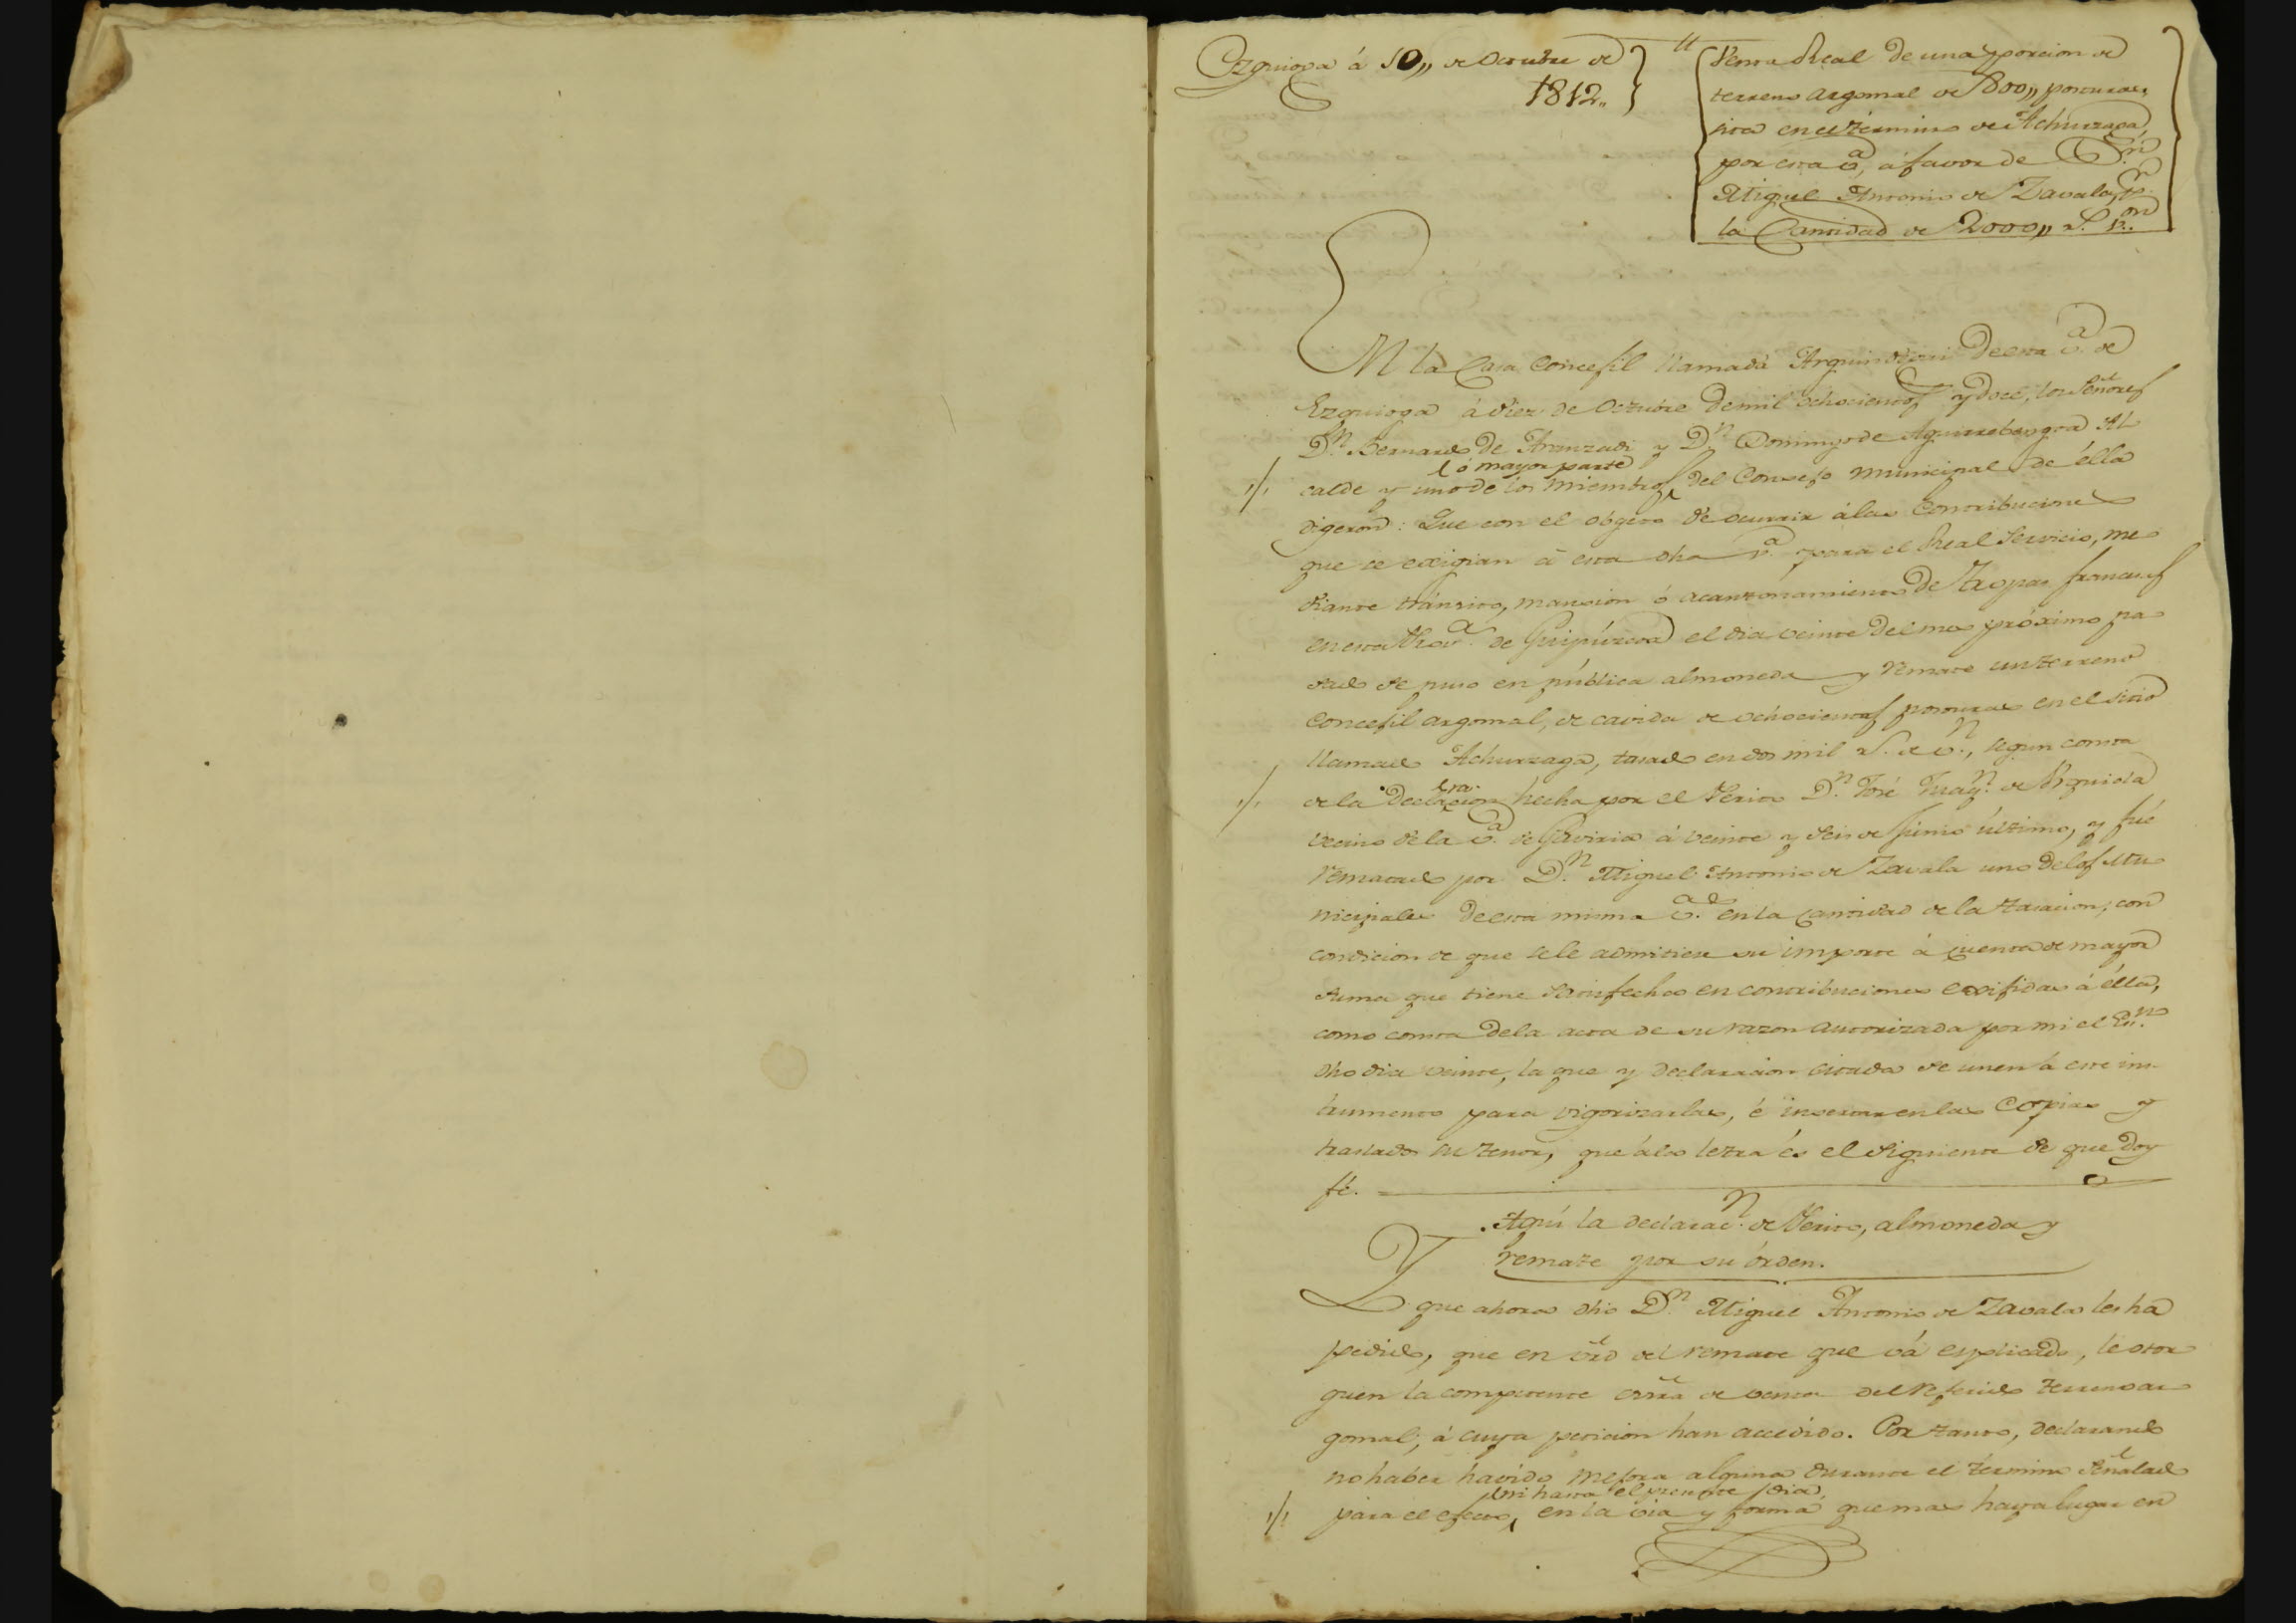 Ezquioga á 10,, de Octubre de
1812,,
Venta Real de una porcion de
terreno argomal de 800,, posturas,
sita en el término de Achurzaga,
por esta v.ª, á favor de D.n
Miguel Antonio de Zavala, p.r
la Cantidad de 2000,, r.s v.on
EN la Casa Concejil llamada Arguindegui de esta v.ª de
Ezquioga á diez de Octubre de mil ochocientos y doce, los Señores
D.n Bernardo de Aranzadi y D.n Domingo de Aguirrebengoa Al
calde y uno de los miembros del Consejo municipal de élla
ló mayor parte
digeron: Que con el obgeto de ocurrir á las Contribuciones
que se exigian á esta dha v.ª para el Real Servicio, me
diante tránsito, mansion ó acantonamiento de Tropas francesas
en esta Prov.ª de Guipúzcoa el dia veinte del mes próximo pa
sado se puso en pública almoneda y remate un terreno
Concejil argomal, de cavida de ochocientas posturas en el sitio
llamado Achurzaga, tasado en dos mil r.s de v.n, segun consta
de la Declaracion hecha por el Perito D.n José Juaq.n de Urquiola
vecino de la v.ª de Gaviria á veinte y seis de Junio último, y fué
rematado por D.n Miguel Antonio de Zavala uno de los Mu
nicipales de esta misma v.ª en la Cantidad de la tasacion; con
condicion de que se le admitiese su importe á cuenta de mayor
suma que tiene satisfecha en contribuciones exijidas á élla,
como consta de la acta de su razon autorizada por mi el Es.no
dho dia veinte, la que y declaracion citada se unen á este ins
trumento para vigorizarlas, é insertar en las Copias y
traslados su tenor, que á la letra és el siguiente de que doy
fé.
Aquí la declarac.n de Perito, almoneda y
remate por su órden.
Y que ahora dho D.n Miguel Antonio de Zavala les ha
pedido, que en vrd del remate que vá esplicado, le otor
guen la competente essra de venta del referido terreno ar
gomal; á cuya peticion han accedido. Por tanto, declarando
no haber havido mejora alguna durante el término señalado
ni hasta el presente dia,
para el efecto, en la via y forma que mas haya lugar en